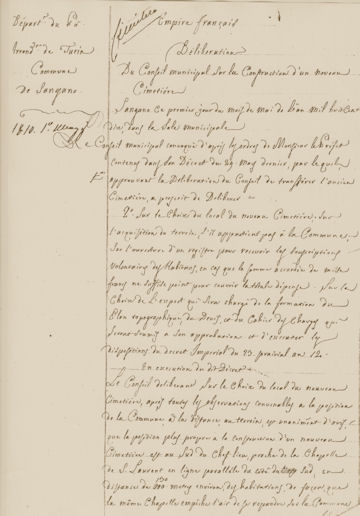 Départ.t du Pô
Arrond.t de Turin
Commune
de Sangano
1810. 1.er
Cimetière
Empire français
Délibération
Du Conseil municipal sur la Construction d'un nouveau
Cimetière
Sangano ce premier jour du mois de mai de l'an mil huit cent
dix, dans la Sale municipale
Le Conseil municipal convoqué d'après les ordres de Monsieur le Préfet
contenus dans son Décret du 29 dernier, par le quel,
approuvant la Délibération du Conseil de transférer l'ancien
Cimetière, a prescrit de Délibérer
Sur le Choix du local du nouveau Cimetière, sur
l'acquisition du terrein, s'il appartient pas à la Commune,
Sur l'ouverture d'un registre pour recevoir les souscriptions
volontaires des habitans, en cas que la somme accordée de mille
francs ne suffise point pour couvrir la totale dépense. Sur le
Choix de l'expert qui sera chargé de la formation du
Plan topographique, du Devis, et du Cahier des Charges
à son approbation et d'exécuter les
dispositions du décret Impérial du 23 prairial an 12.
En exécution du dit Décret
Le Conseil délibérant sur le Choix du local du nouveau
Cimetière, après toutes les observations convenables à la position
de la Commune, à la distance, au terrein, est unanimement d'avis,
que la position plus propre à la construction d'un nouveau
Cimetière est au Sud du Chef lieu, proche de la Chapelle
de S.t Laurent en ligne parallèle du côté du Sud, en
distance de metres environ des habitations, de façon que
la même Chapelle empêche l'air de se répandre sur la Commune